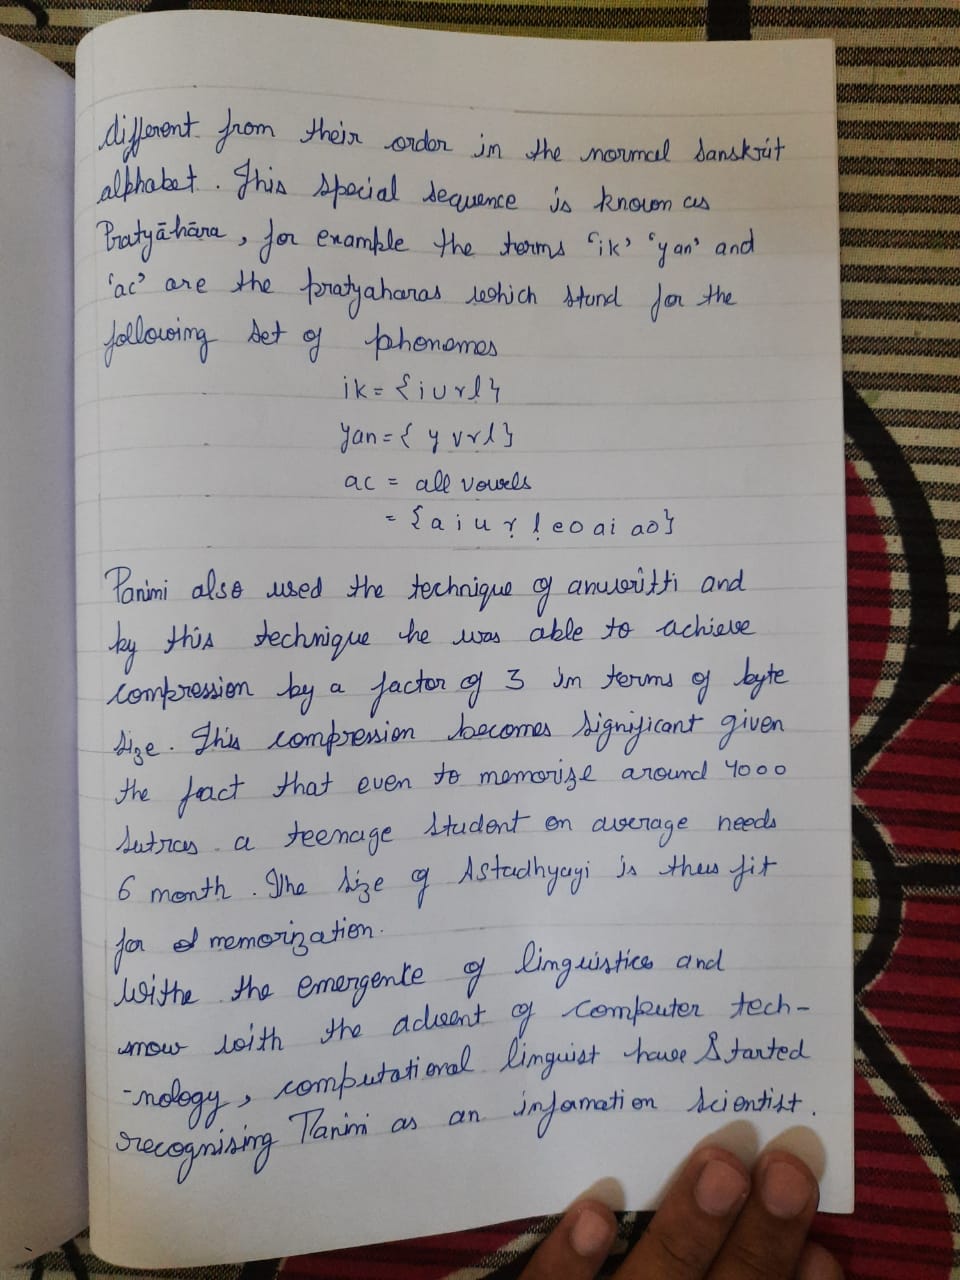 different from their order in the normal Sanskrit
alphabet. This special sequence is known as
Pratyāhāra, for example the terms 'ik' 'yan' and
'ac' are the pratyaharas which stand for the
following set of phonemes
ik = {i u r l}
yan = { y v r l }
ac = all vowels
= {a i u ṛ ḷ e o ai ao}
Panini also used the technique of anuvritti and
by this technique he was able to achieve
compression by a factor of 3 in terms of byte
size. This compression becomes significant given
the fact that even to memorize around 4000
sutras a teenage student on average needs
6 month. The size of Astadhyayi is thus fit
for memorization.
Withe the emergence of linguistics and
now with the advent of computer tech-
-nology, computational linguist have Started
recognising Panini as an infomation scientist.